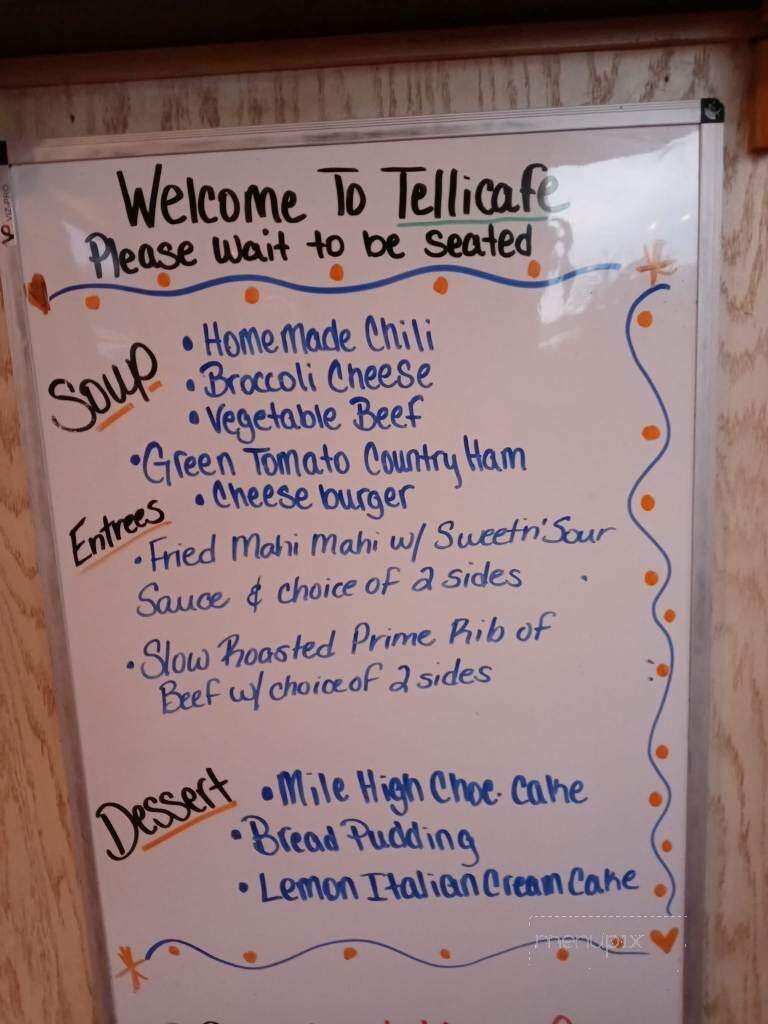 Welcome To Tellicafe
Please wait to be seated
Soup
• HomeMade Chili
• Broccoli Cheese
• Vegetable Beef
• Green Tomato Country Ham
• Cheese burger
Entrees
• Fried Mahi Mahi w/ Sweetn'Sour
Sauce & choice of 2 sides
• Slow Roasted Prime Rib of
Beef w/ choice of 2 sides
Dessert
• Mile High Choc. Cake
• Bread Pudding
• Lemon Italian Cream Cake
menupix
VIZ-PRO